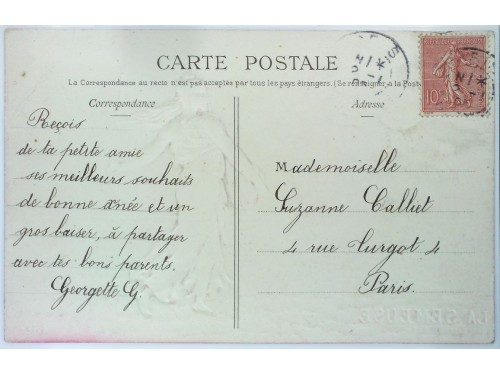 CARTE POSTALE
La Correspondance au recto n'est pas acceptée par tous les pays étrangers. (Se renseigner à la Poste
Correspondance
Adresse
Reçois
de ta petite amie
ses meilleurs souhaits
de bonne année et un
gros baiser, à partager
avec tes bons parents.
Georgette G.
Mademoiselle
Suzanne Calliet
4 rue Turgot 4
Paris.
10